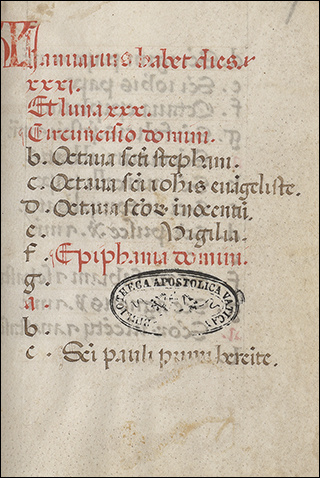 KL Ianuarius habet dies.
xxxi.
Et luna xxx.
Circuncisio domini.
b. Octaua scti stephani.
c. Octaua sci iohis euãgeliste.
d. Octaua scõꝝ inocentũ.
e. Vigilia.
f. Epiphania domini.
g.
a.
b.
c. Sci pauli primi heremite.
BIBLIOTHECA APOSTOLICA VATICANA